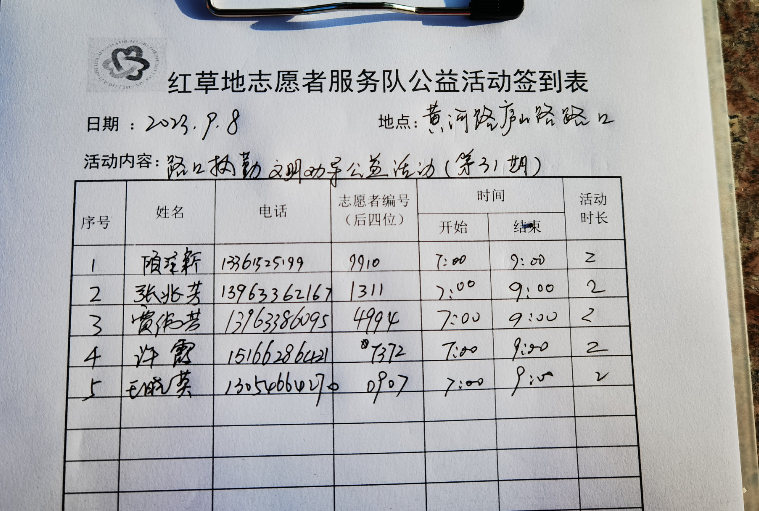 红草地志愿者服务队公益活动签到表
日期：2023.9.8 地点：黄河路庐山路路口
活动内容：路口执勤文明劝导公益活动（第31期）
序号 姓名 电话 志愿者编号（后四位） 时间 开始 结束 活动时长
1 13361525199 9910 7:00 9:00 2
2 张兆芳 13963362167 1311 7:00 9:00 2
3 贾 芳 13963386095 4994 7:00 9:00 2
4 许霞 15166286421 7372 7:00 9:00 2
5 王晓英 13054664270 0907 7:00 9:00 2